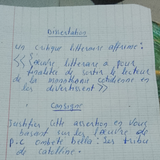 Dissertation
Un critique littéraire affirme :
<< L'œuvre littéraire a pour
finalité de sortir le lecteur
de la monotonie quotidienne en
les divertissent >>
Consigne
Justifier cette assertion en vous
basant sur les l'œuvre de
P.C ombete bella : les tribus
de capitoline.